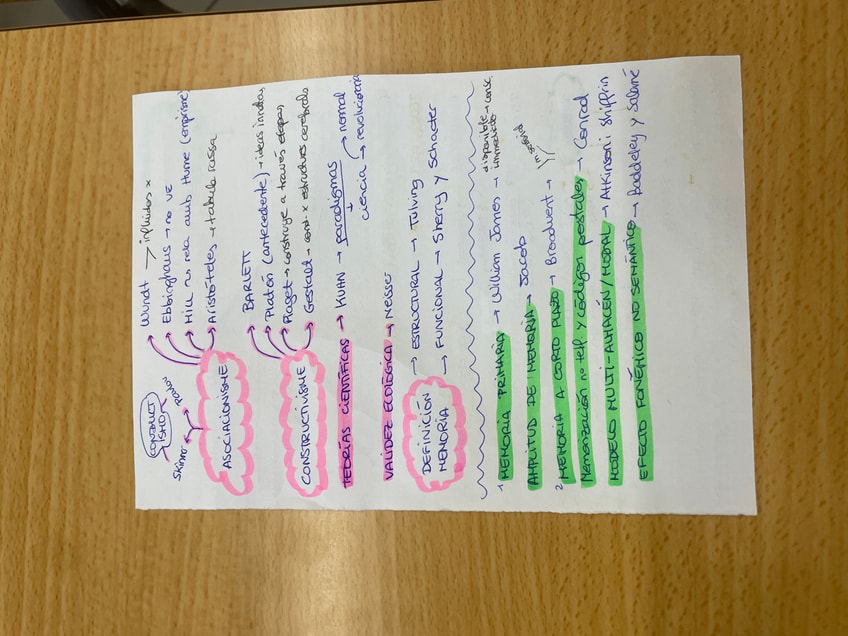 CONDUCT
ISMO
Skinner
Pavlov
Wundt → influidos x
Ebbinghaus → no ve
Mill → rela amb Hume (empirisme)
ASOCIACIONISME
Aristóteles → tabula rassa
BARLETT
Platón (antecedente) → ideas innatas
Piaget → construye a través etapas
CONSTRUCTIVISME
Gestalt → cont. x estructura cerebrals
TEORÍAS CIENTÍFICAS → KUHN → paradigmas → normal
ciencia → revolucionaria
VALIDEZ ECOLÓGICA → Neisser
DEFINICIÓN → ESTRUCTURAL → Tulving
MEMORIA → FUNCIONAL → Sherry y Schacter
1 MEMORIA PRIMARIA → William James → disponible → consc.
immediato
AMPLITUD DE MEMORIA → Jacob
2 MEMORIA A CORTO PLAZO → Broadvent →
Memorización no telf y códigos postales → Conrad
MODELO MULTI-ALMACÉN/MODAL → Atkinson i Shiffrin
EFECTO FONÉMICO NO SEMÁNTICO → Baddeley y Salamé